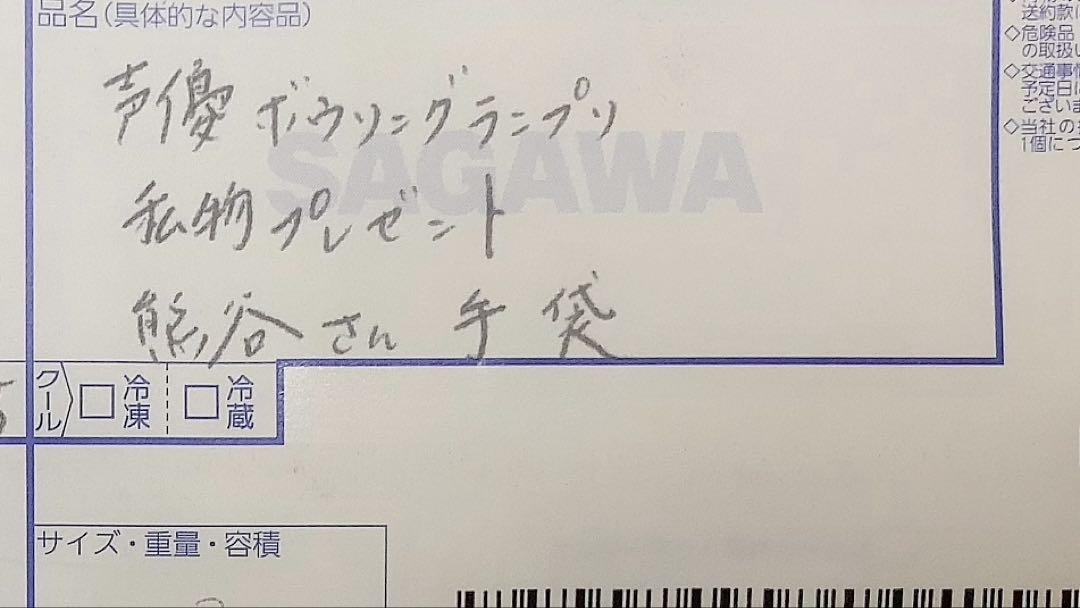 品名(具体的な内容品)
声優ボウリングランプリ
私物プレゼント
熊谷さん 手袋
SAGAWA
クール
冷凍
冷蔵
サイズ・重量・容積
送約款
◇危険品
の取扱い
◇交通事情
予定日に
ございま
◇当社の
1個につ